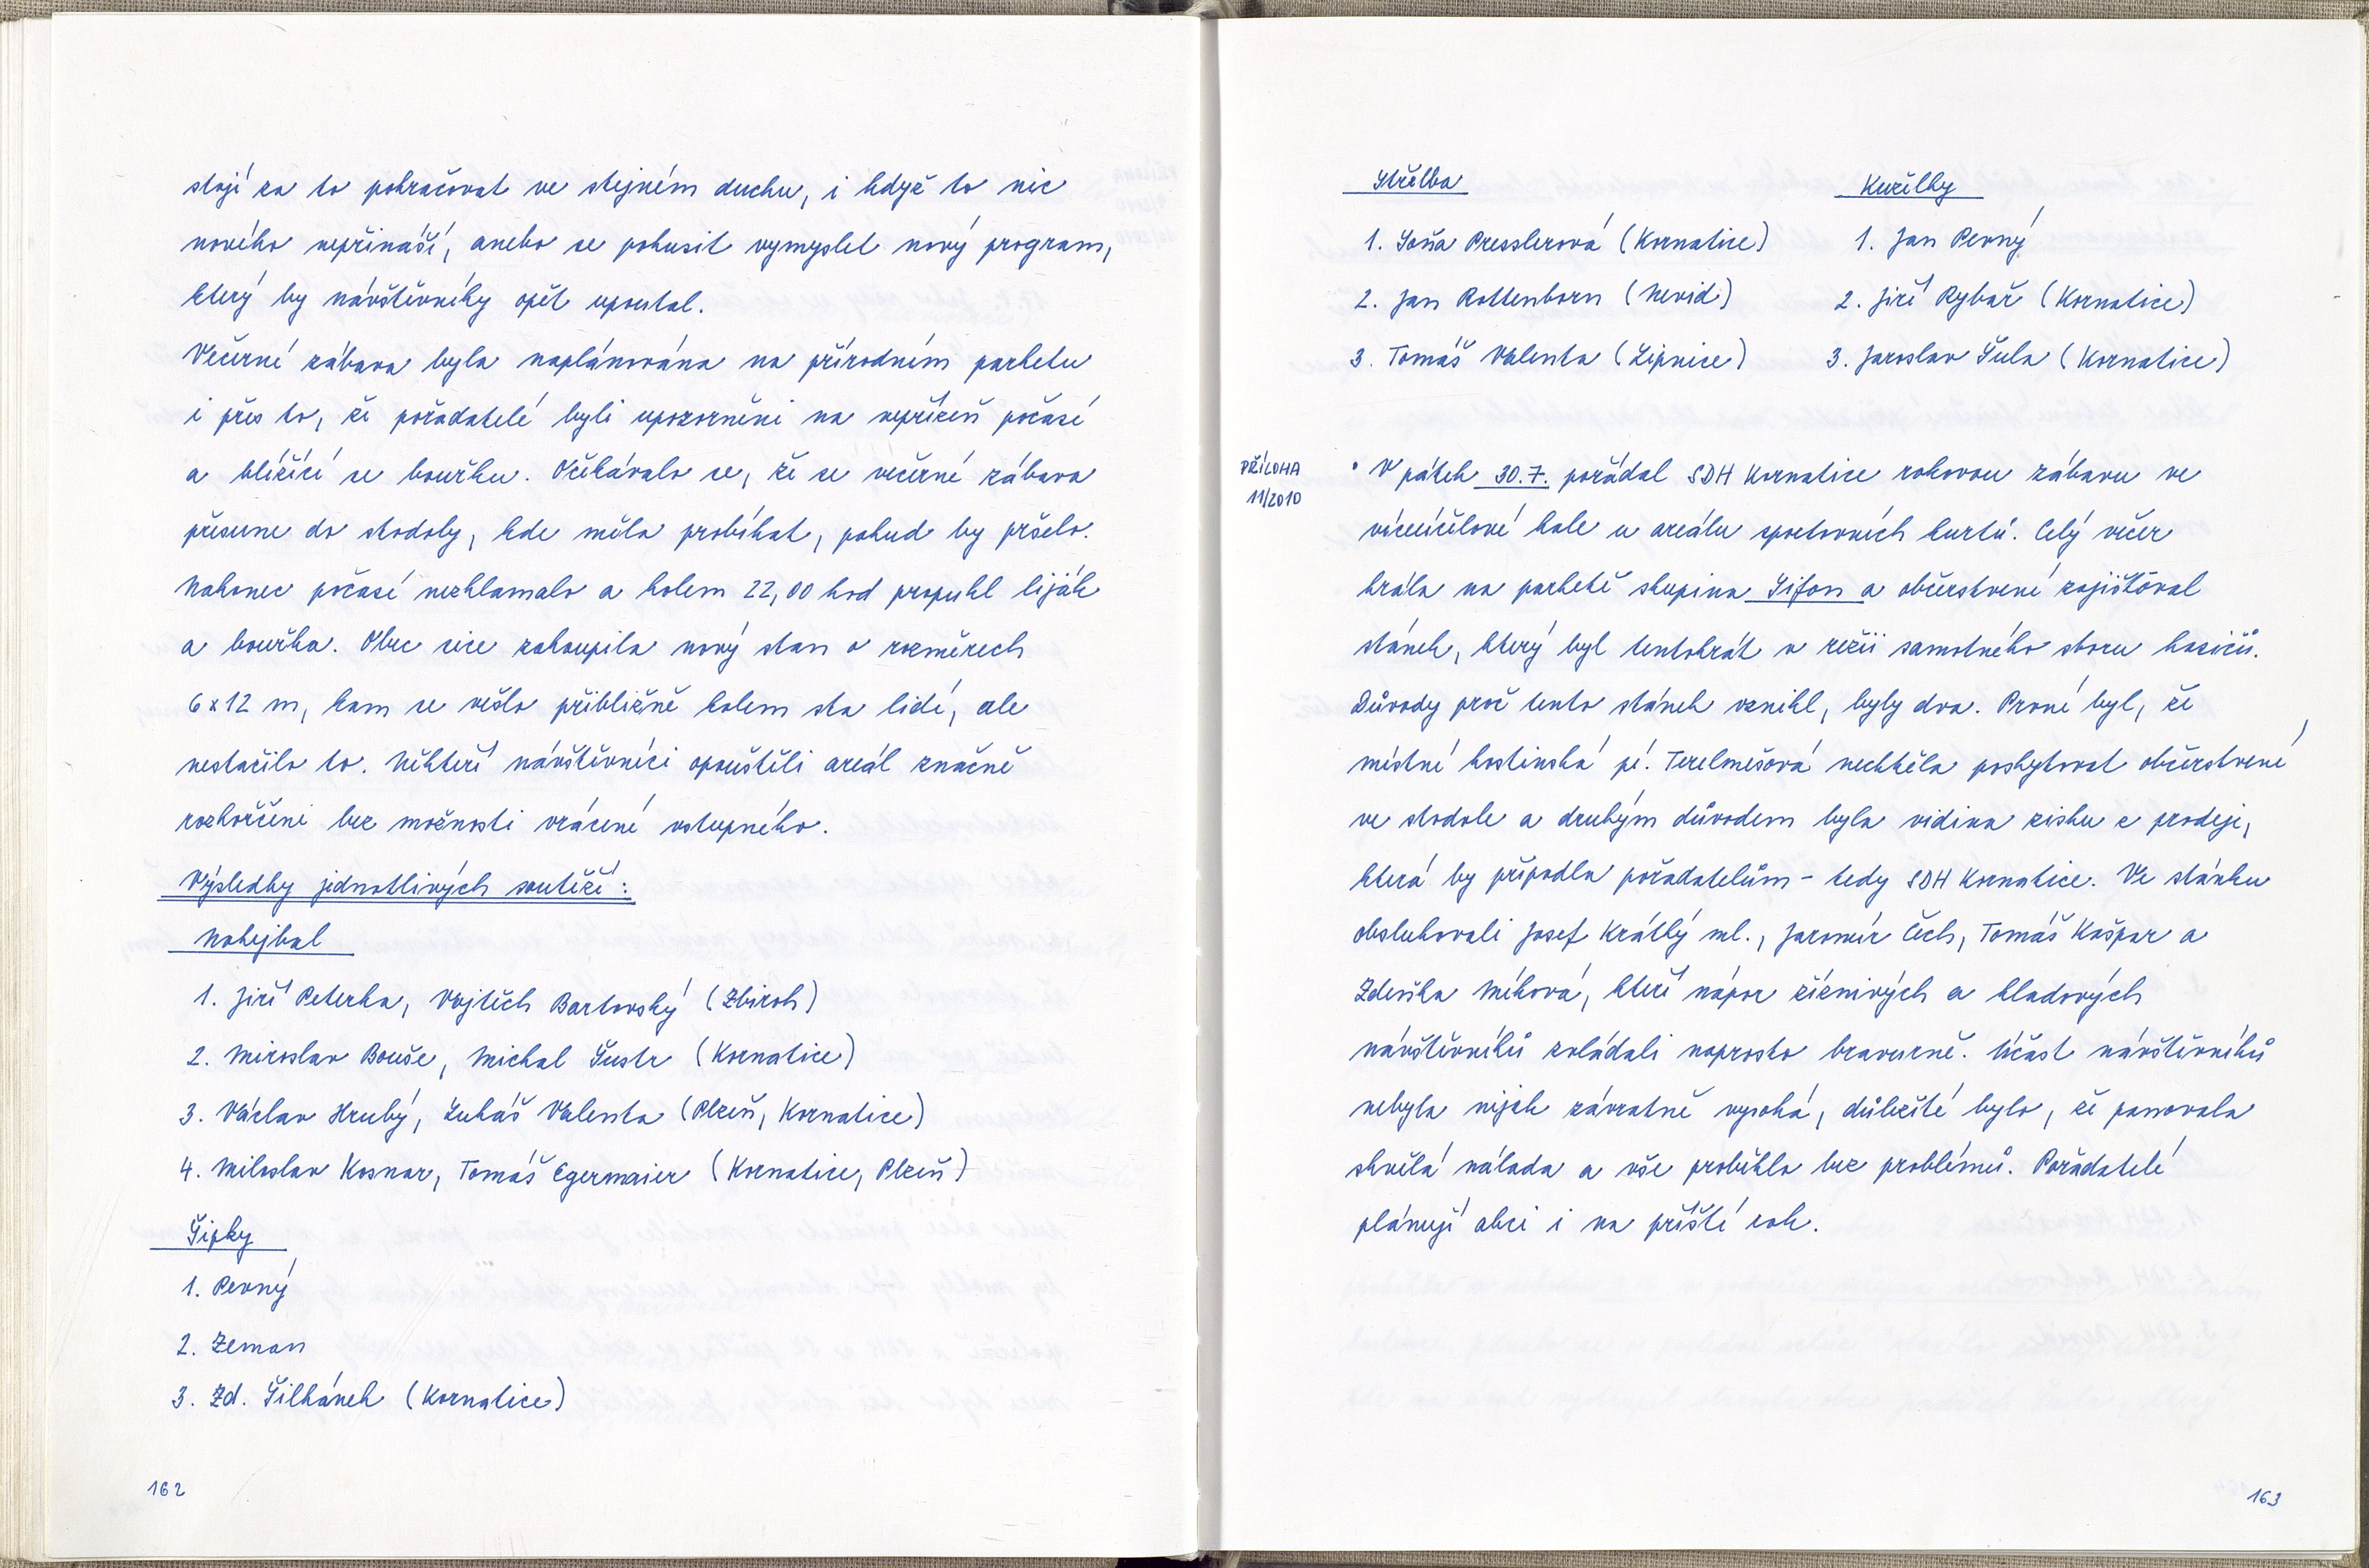 stojí za to pokračovat ve stejném duchu, i když to nic
nového nepřináší, anebo se pokusit vymyslet nový program,
který by návštěvníky opět upoutal.
Večerní zábava byla naplánována na přírodním parketu
i přes to, že pořadatelé byli upozorněni na nepřízeň počasí
a blížící se bouřku. Očekávalo se, že se večerní zábava
přesune do stodoly, kde měla probíhat, pokud by pršelo.
Nakonec počasí nezklamalo a kolem 22,00 hod propukl liják
a bouřka. Obec sice zakoupila nový stan o rozměrech
6x12 m, kam se vešlo přibližně kolem sta lidí, ale
nestačilo to. Někteří návštěvníci opouštěli areál značně
rozhořčeni bez možnosti vrácení vstupného.
Výsledky jednotlivých soutěží:
Nohejbal
1. Jiří Peterka, Vojtěch Bartovský (Zbiroh)
2. Miroslav Bouše, Michal Šustr (Kornatice)
3. Václav Hrubý, Lukáš Valenta (Plzeň, Kornatice)
4. Miloslav Kosnar, Tomáš Egermaier (Kornatice, Plzeň)
Šipky
1. Pevný
2. Zeman
3. Zd. Šilhánek (Kornatice)
162
Střelba
1. Soňa Presslerová (Kornatice)
2. Jan Rottenborn (Nevid)
3. Tomáš Valenta (Lipnice)
Kuželky
1. Jan Pevný
2. Jiří Rybář (Kornatice)
3. Jaroslav Šula (Kornatice)
PŘÍLOHA
11/2010
• V pátek 30.7. pořádal SDH Kornatice rokovou zábavu ve
víceúčelové hale u areálu sportovních kurtů. Celý večer
hrála na parketě skupina Sifon a občerstvení zajišťoval
stánek, který byl tentokrát v režii samotného sboru hasičů.
Důvody proč tento stánek vznikl, byly dva. První byl, že
místní hostinská pí. Terelmešová nechtěla poskytovat občerstvení
ve stodole a druhým důvodem byla vidina zisku z prodeje,
která by připadla pořadatelům - tedy SDH Kornatice. Ve stánku
obsluhovali Josef Krátký ml., Jaromír Čech, Tomáš Kašpar a
Zdeňka Míková, kteří nápor žíznivých a hladových
návštěvníků zvládali naprosto bravurně. Účast návštěvníků
nebyla nijak závratně vysoká, důležité bylo, že panovala
skvělá nálada a vše proběhlo bez problémů. Pořadatelé
plánují akci i na příští rok.
163